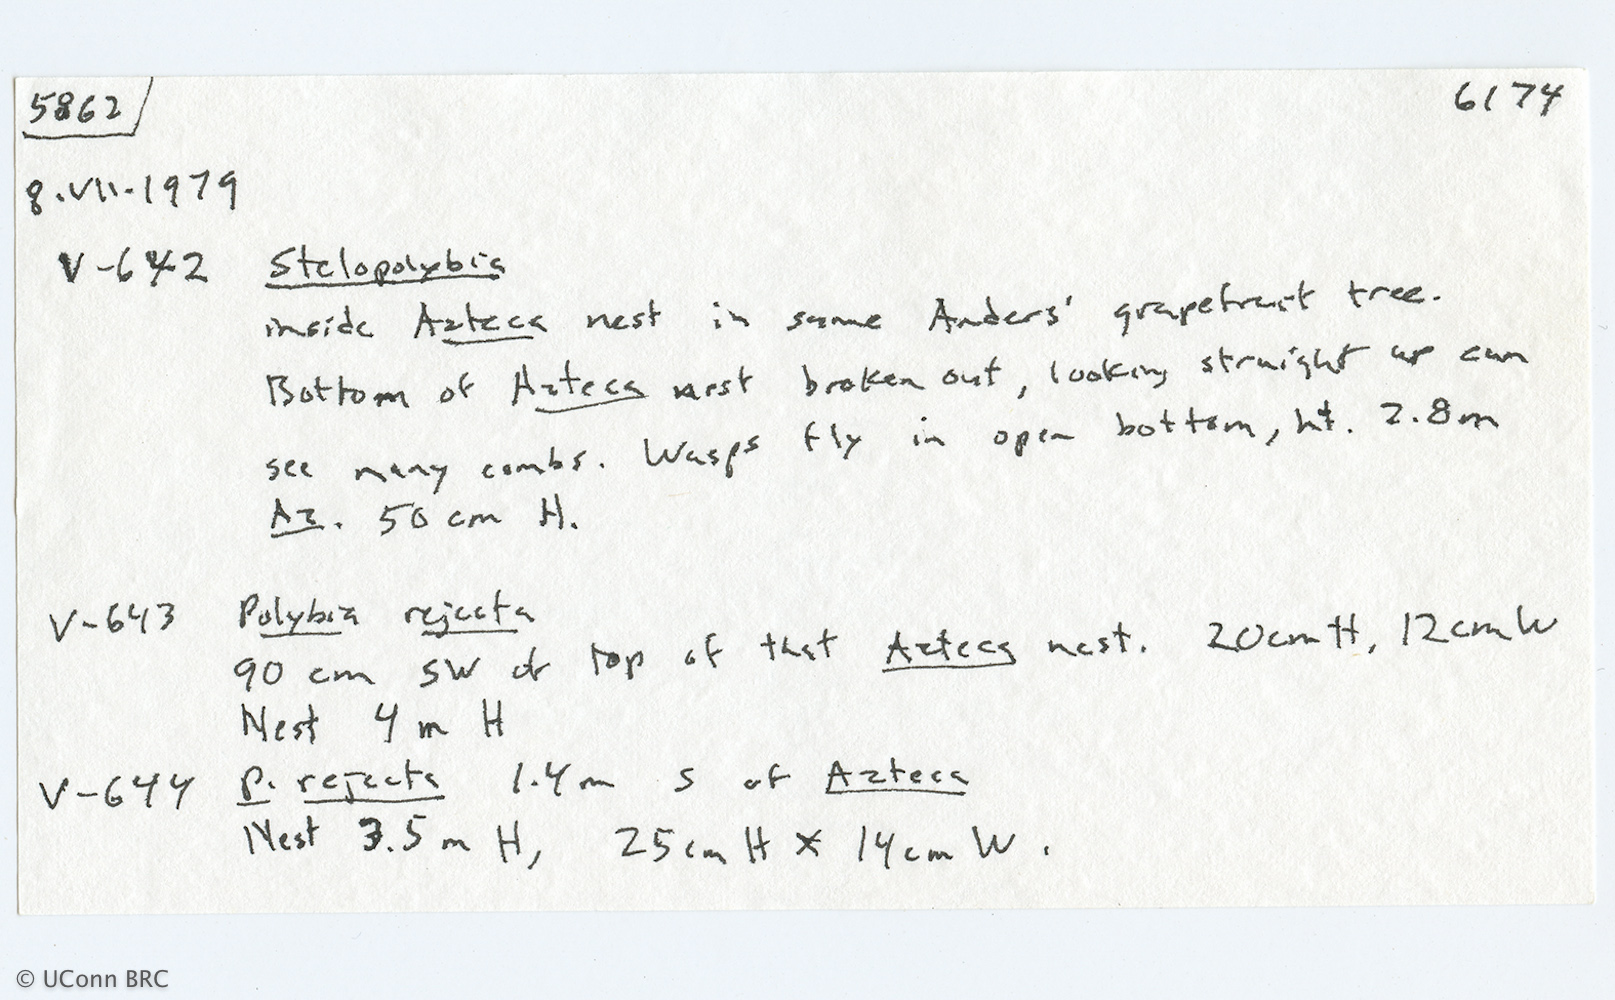 5862 6174
8.VII.1979
V-642 Stelopolybia
inside Azteca nest in same Anders' grapefruit tree.
Bottom of Azteca nest broken out, looking straight up can
see many combs. Wasps fly in open bottom, ht. 2.8m
Az. 50 cm H.
V-643 Polybia rejecta
90 cm SW of top of that Azteca nest. 20cm H, 12cm W
Nest 4 m H
V-644 P. rejecta 1.4m S of Azteca
Nest 3.5 m H, 25cm H x 14cm W.
© UConn BRC